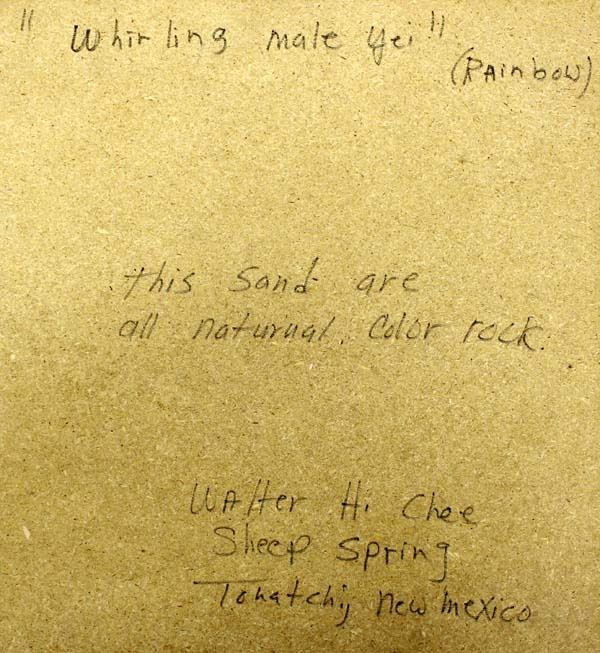 "Whirling male yei"
(RAinbow)
this sand are
all naturual. Color rock.
WAlter H. Chee
Sheep Spring
Tohatchi, new mexico